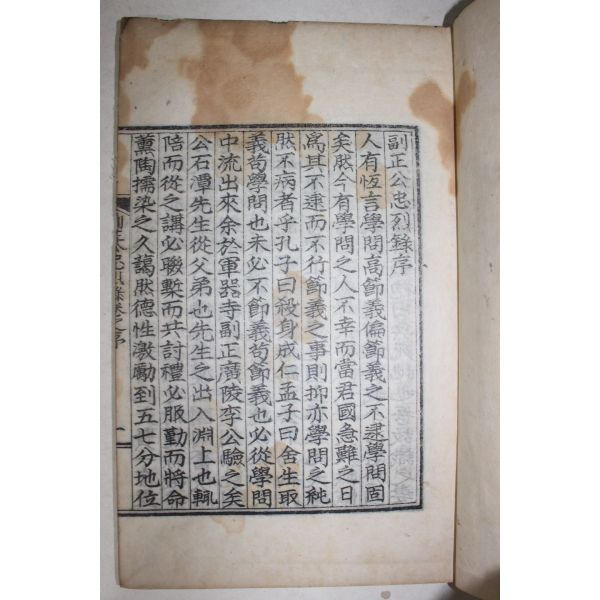 副正公忠烈錄序
人有恆言學問高節義偏節義之不逮學問固
矣然今有學問之人不幸而當君國急難之日
爲其不逮而不行節義之事則抑亦學問之純
然不病者乎孔子曰殺身成仁孟子曰舍生取
義苟學問也未必不節義苟節義也必從學問
中流出來余於軍器寺副正廣陵李公驗之矣
公石潭先生從父弟也先生之出入淵上也輒
陪而從之講必聯槧而共討禮必服勤而將命
薰陶擩染之久藹然德性激勵到五七分地位
副正公忠烈錄卷之序